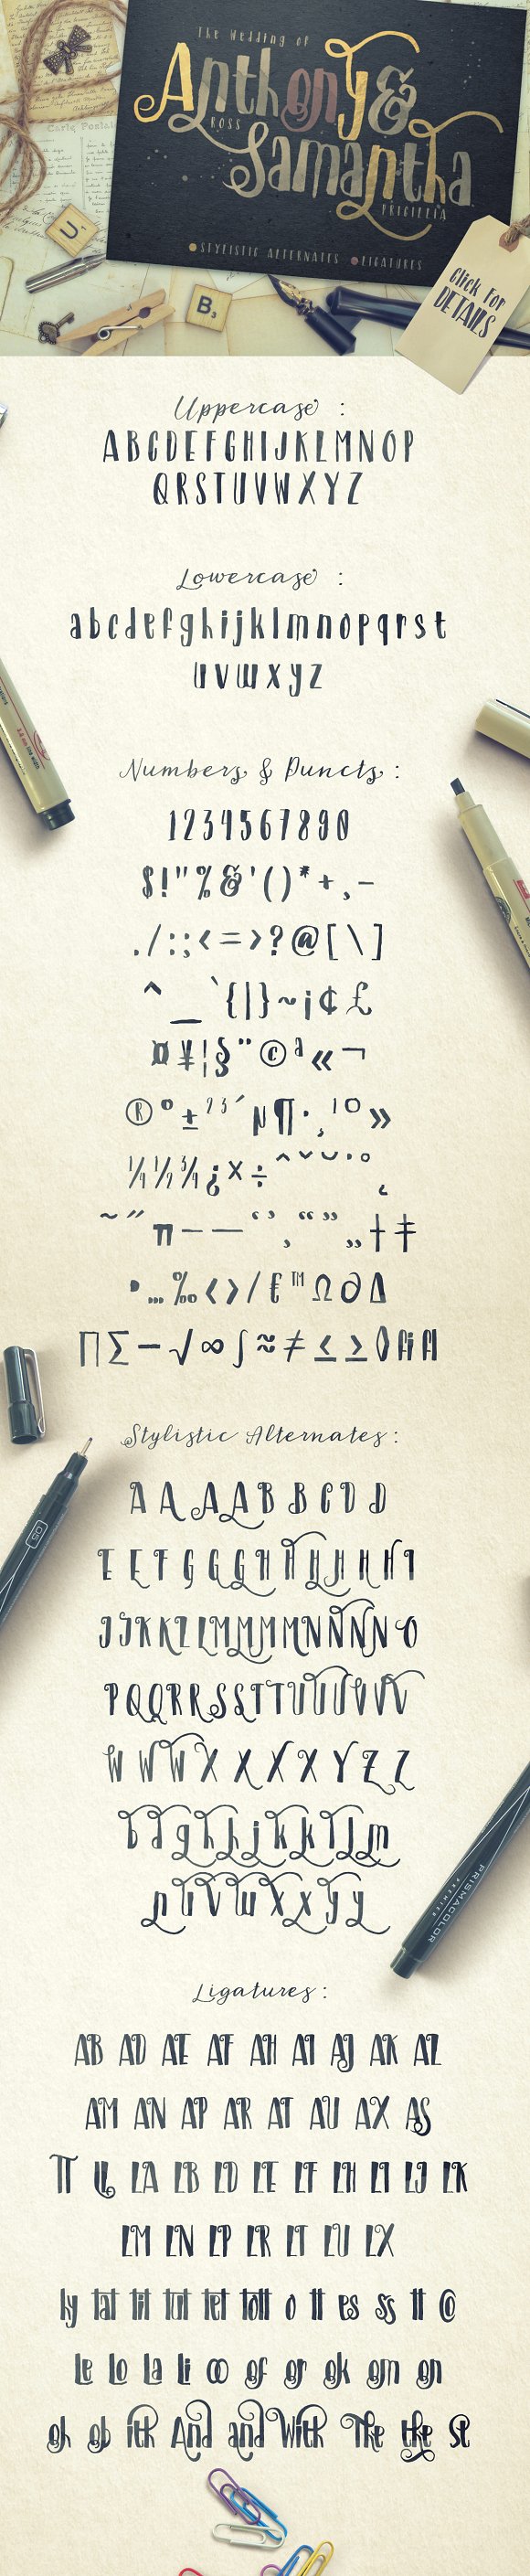 The Wedding of
Anthony &
ROSS
Samantha
PRICILLIA
STYLISTIC ALTERNATES LIGATURES
Click For
DETAILS
B
Uppercase :
A B C D E F G H I J K L M N O P
Q R S T U V W X Y Z
Lowercase :
a b c d e f g h i j k l m n o p q r s t
u v w x y z
Numbers & Puncts :
1 2 3 4 5 6 7 8 9 0
$ ! " % & ' ( ) * + , -
. / : ; < = > ? @ [ \ ]
^ _ ` { | } ~ ¡ ¢ £
¤ ¥ ¦ § ¨ © ª « ¬
® ° ± ² ³ ´ µ ¶ · ¸ ¹ º »
¼ ½ ¾ ¿ × ÷ ˆ ˇ ˘ ˙ ˚ ˛
˜ ˝ π – — ‘ ’ ‚ “ ” „ † ‡
• … ‰ ‹ › ⁄ € ™ Ω ∂ ∆
∏ ∑ − √ ∞ ∫ ≈ ≠ ≤ ≥ ◊ fi fl
Stylistic Alternates :
A A A A B B C D D
E E F G G G H H H H H I
J J K K L L M M M M N N N N O
P Q Q R R S S T T U U U V V V
W W W X X X X Y Z Z
b d g h h j k k l l m
n u v w x x y y
05
PRISMACOLOR
PREMIER
Ligatures :
AB AD AE AF AH AI AJ AK AL
AM AN AP AR AT AU AX AS
TT LL LA LB LD LE LF LH LI LJ LK
LM LN LP LR LT LU LX
ly tat tit tut tet tott o tt es ss tt @
le lo la li oo of or ok om on
oh ob ith And and With The the st